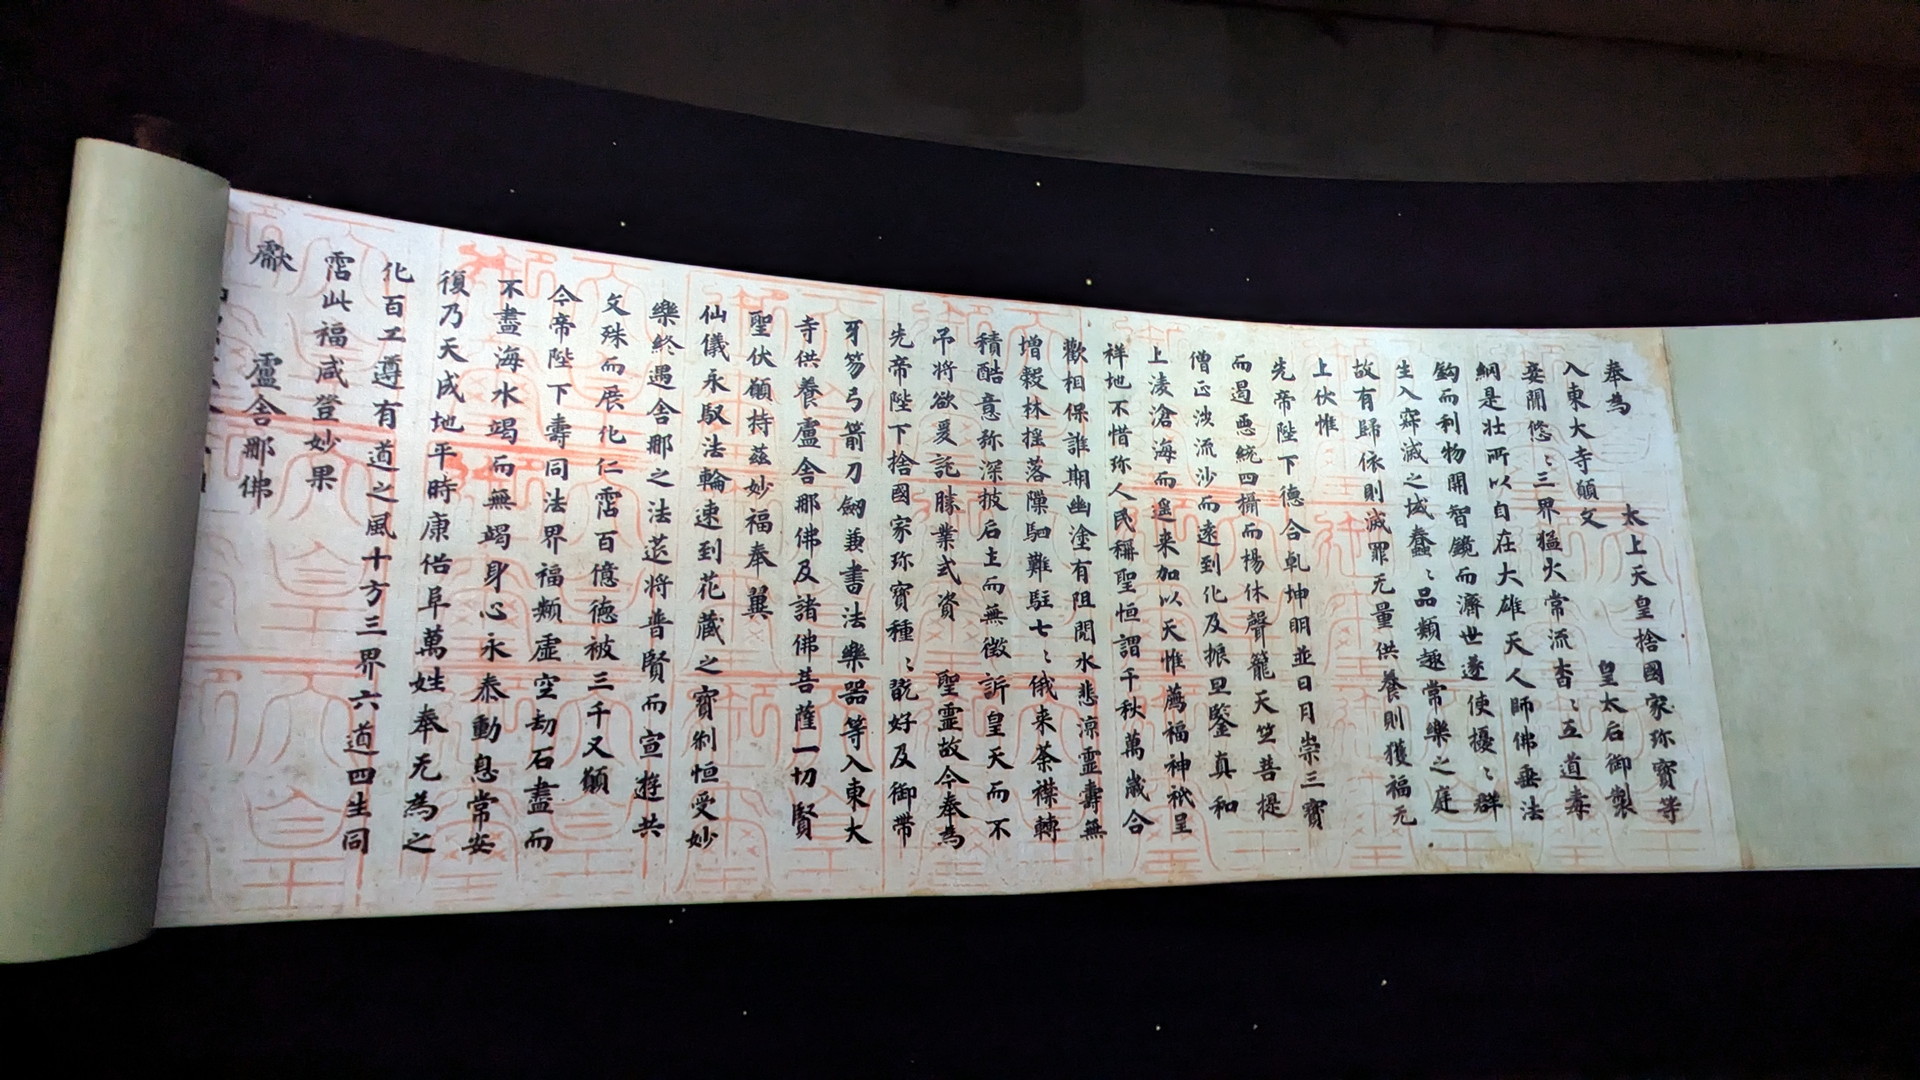 奉為　太上天皇捨國家珎寶等
入東大寺願文　皇太后御製
妾聞悠〻三界猛火常流杳〻五道毒
網是壮所以自在大雄天人師佛垂法
鈎而利物開智鏡而濟世遂使擾〻群
生入寂滅之域蠢〻品類趣常樂之庭
故有歸依則滅罪无量供養則獲福无
上伏惟
先帝陛下德合乹坤明並日月崇三寶
而遏惡統四攝而楊休聲籠天竺菩提
僧正涉流沙而遠到化及振旦鑒真和
上凌滄海而遥来加以天惟薦福神祇呈
祥地不惜珎人民稱聖恒謂千秋萬歲合
歡相保誰期幽塗有阻閱水悲凉霊壽無
増穀林揺落隟駟難駐七〻俄来荼襟轉
積酷意弥深披后土而無徴訴皇天而不
吊将欲爰託勝業式資　聖霊故今奉為
先帝陛下捨國家珎寶種〻翫好及御帶
牙笏弓箭刀劔兼書法樂器等入東大
寺供養盧舍那佛及諸佛菩薩一切賢
聖伏願持茲妙福奉翼
仙儀永馭法輪速到花蔵之寶刹恒受妙
樂終遇舍那之法莚将普賢而宣遊共
文殊而展化仁霑百億德被三千又願
今帝陛下壽同法界福類虚空劫石盡而
不盡海水竭而無竭身心永泰動息常安
復乃天成地平時康俗阜萬姓奉无為之
化百工遵有道之風十方三界六道四生同
霑此福咸登妙果
獻　盧舍那佛